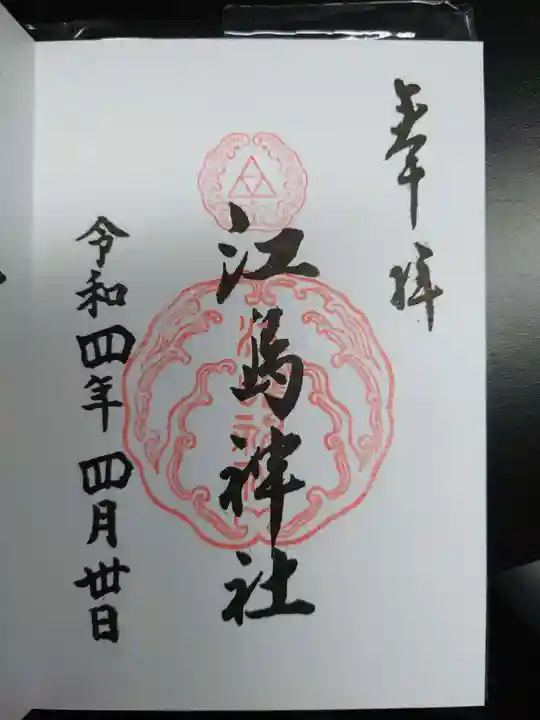 奉拝
江島神社
令和四年四月卅日